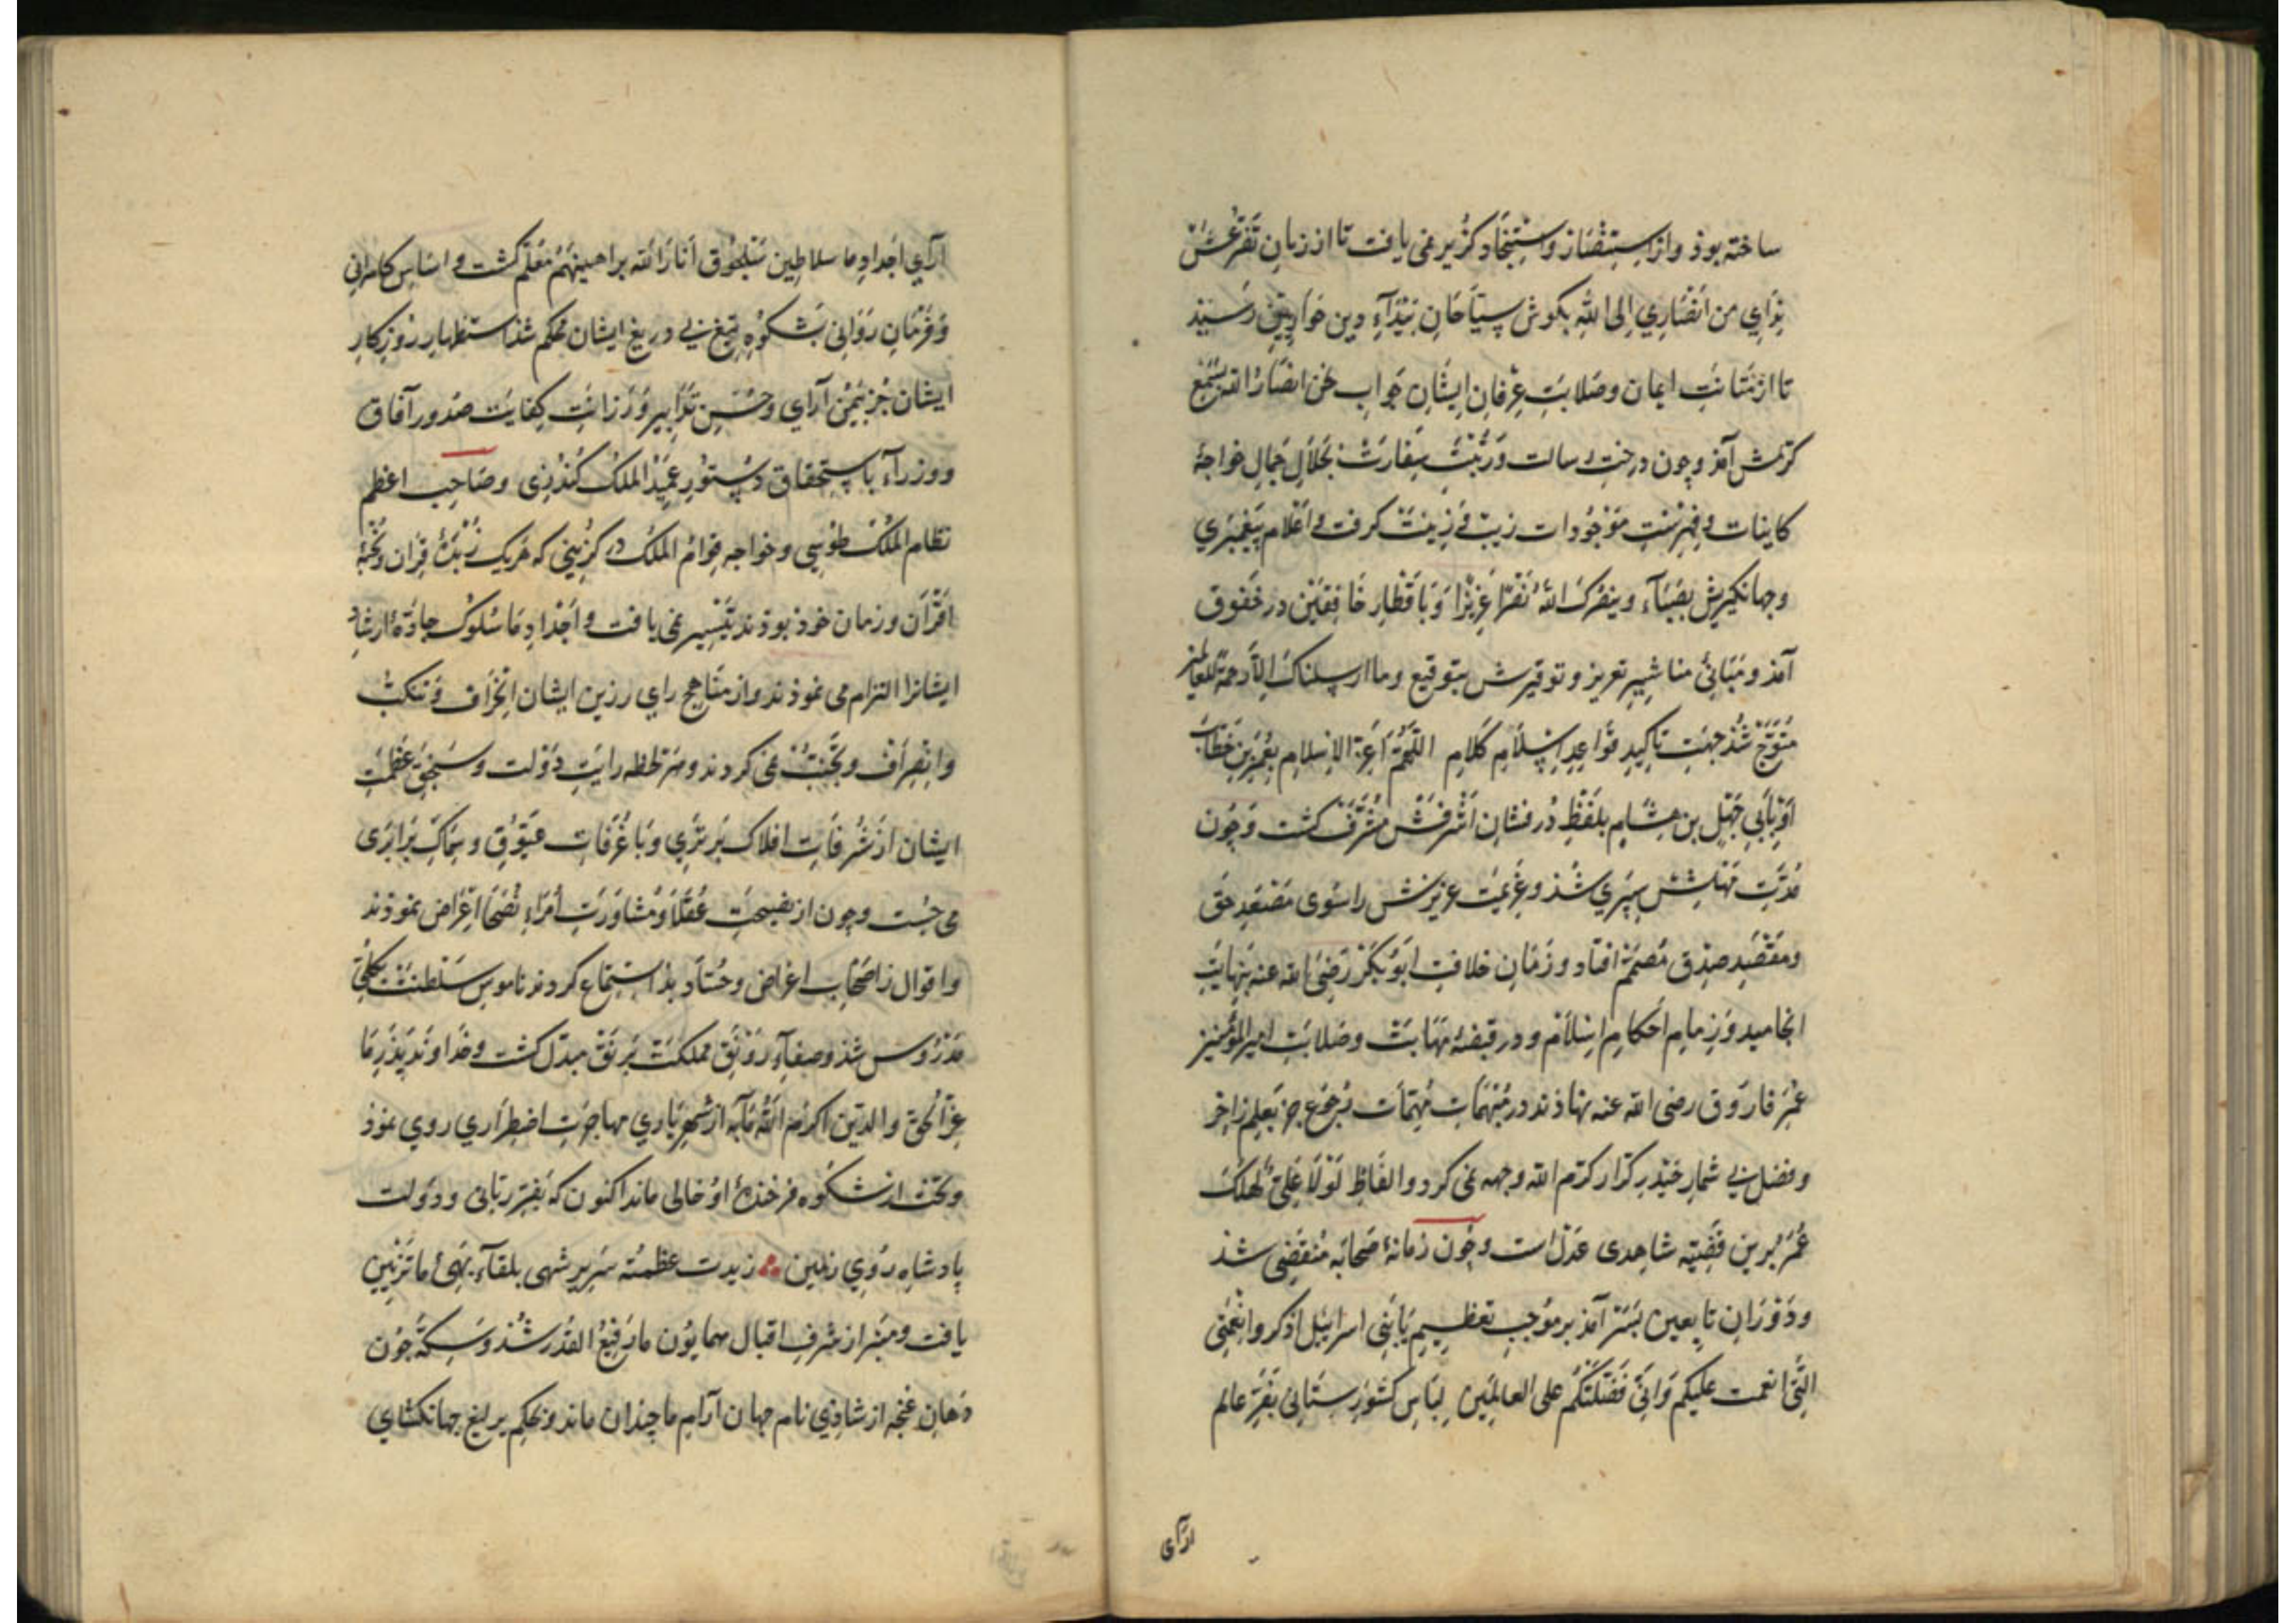 ساخته بوذ واز استنصار واستنجاد کزیر نمی یافت تا از زبان تضرعش
نوای من انصاری الی الله بکوش سیاحان بیدآء دین حواریین رسیذ
تا از متانت ایمان وصلابت عرفان ایشان جواب نحن انصار الله بسمع
کرمش آمذ وجون درخت رسالت ورتبت سفارت بجلال جمال خواجهٔ
کاینات و فهرست موجودات زیب و زینت کرفت و اعلام پیغمبری
وجهانکیریش بضیآء وینصرک الله نصرا عزیزا وباقطار خافقین در خفوق
آمذ ومبانیٔ مناشیر تعزیز وتوقیرش بتوقیع وما ارسلناک الا رحمة للعالمین
متوج شذ جهت تاکید قواعد اسلام کلام اللهم اعز الاسلام بعمر بن خطاب
او بابی جهل بن هشام بلفظ درفشان اشرفش مشرف کشت وجون
مدت مهلتش سپری شذ وعزیمت عزیزش را سوی مصعد حق
ومقصد صدق مصمم افتاد وزمان خلافت ابوبکر رضی الله عنه بنهایت
انجامید وزمام احکام اسلام ودر قبضهٔ مهابت وصلابت امیر المؤمنین
عمر فاروق رضی الله عنه نهاذند در منبهمات مهمات رجوع جز بعلم زاخر
وفضل بی شمار حیدر کرار کرم الله وجهه نمی کرد والفاظ لولا علی لهلک
عمر برین قضیه شاهدی عدل است وجون زمانهٔ صحابه منقضی شذ
ودوران تابعین بسر آمذ بر موجب تعظیم یا بنی اسرایل اذکروا نعمتی
التی انعمت علیکم وانی فضلتکم علی العالمین لباس کشورستانی بفر عالم
ارآی
ارآی اجداد ما سلاطین سلجوق انار الله براهینهم معلم کشت و اساس کامرانی
وفرمان روانی بشکوه تیغ بی دریغ ایشان محکم شذ استظهار روزکار
ایشان جز بیمن آرای وحسن تدابیر ورزانت کفایت صدور آفاق
ووزرآء باستحقاق دستور عمید الملک کندزی وصاحب اعظم
نظام الملک طوسی وخواجه قوام الملک در کزینی که هریک زبدهٔ قران ونخبهٔ
اقران وزمان خوذ بوذند تیسیر نمی یافت و اجداد ما سلوک جادهٔ ارشاد
ایشانرا التزام می نموذند واز مناهج رای رزین ایشان انحراف وتنکب
وانصراف وتجنب نمی کردند وهر لحظه رایت دولت وسنجق عظمت
ایشان از شرفات افلاک برتری وبا غرفات عیوق وسماک برابری
می جست وجون از نصیحت عقلا ومشاورت امراء نصحا اعراض نموذند
واقوال اصحاب اغراض وحساد بذ استماع کردند ناموس سلطنت بکلی
مدروس شذ وصفاء رونق مملکت برنق مبدل کشت وخداوند پذر ما
عز الحق والدین اکرم الله مآبه از شهریاری مهاجرت اضطراری روی نموذ
وتخت از شکوه فرخندهٔ او خالی ماند اکنون که بفر ربانی ودولت
پادشاه روی زمین زیدت عظمته سریر شهی بلقآء بهیٔ ما تزیین
یافت ومنبر از شرف اقبال همایون ما رفیع القدر شذ وسکه جون
دهان غنجه از شادی نام جهان آرام ما خندان ماند وبحکم یرلیغ جهانکشای